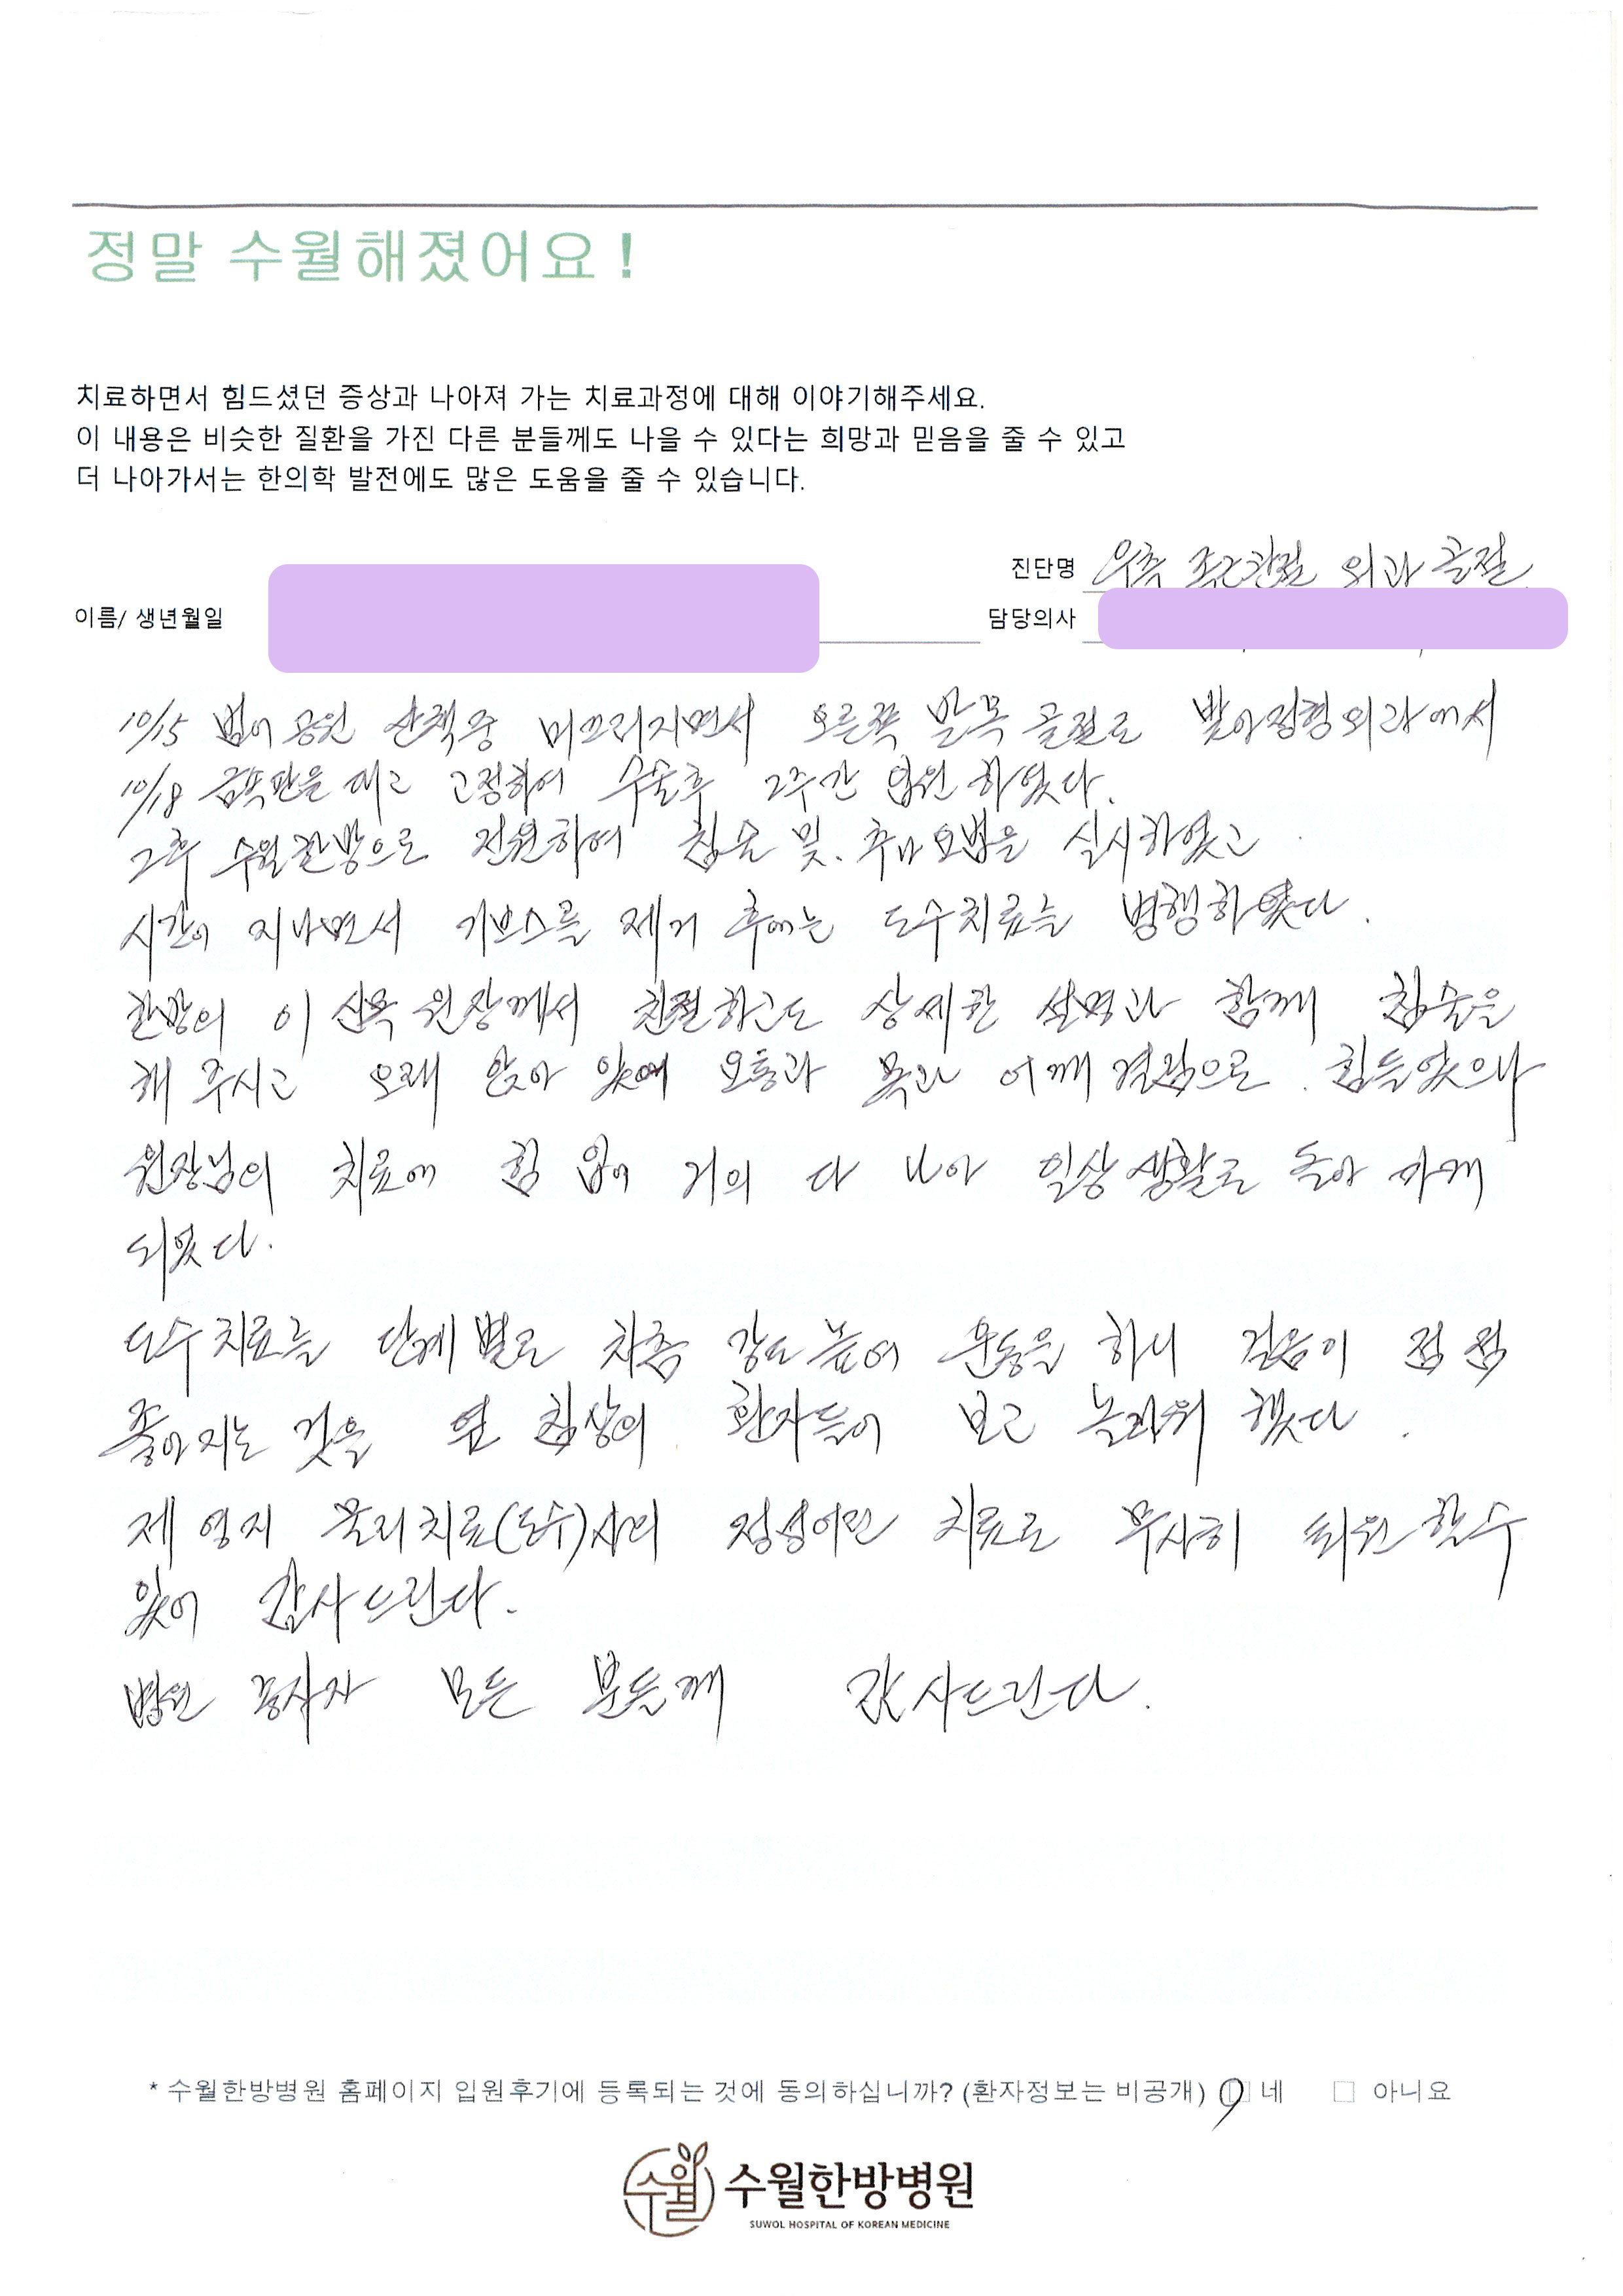 정말 수월해졌어요!
치료하면서 힘드셨던 증상과 나아져 가는 치료과정에 대해 이야기해주세요.
이 내용은 비슷한 질환을 가진 다른 분들께도 나을 수 있다는 희망과 믿음을 줄 수 있고
더 나아가서는 한의학 발전에도 많은 도움을 줄 수 있습니다.
진단명 우측 족근관절 외과 골절
이름/ 생년월일 담당의사
10/15 범어공원 산책중 미끄러지면서 오른쪽 발목 골절로 정형외과에서
10/18 금속판을 대고 고정하여 수술후 2주간 입원 하였다.
그후 수월한방으로 전원하여 침술 및. 추나요법을 실시하였고
시간이 지나면서 기브스를 제거 후에는 도수치료를 병행하였다.
한방의 이 원장께서 친절하고도 상세한 설명과 함께 침술을
해 주시고 오래 앉아 있어 요통과 목과 어깨 결림으로 힘들었으나
원장님의 치료에 힘 입어 거의 다 나아 일상생활로 돌아 가게
되었다.
도수치료를 단계별로 차츰 강도 높여 운동을 하니 걸음이 점점
좋아지는 것을 옆 침상의 환자들이 보고 놀라워 했다.
제 영지 물리치료(도수)사의 정성어린 치료로 무사히 퇴원할수
있어 감사드린다.
병원 종사자 모든 분들께 감사드린다.
* 수월한방병원 홈페이지 입원후기에 등록되는 것에 동의하십니까? (환자정보는 비공개) 네 □ 아니요
수월 수월한방병원
SUWOL HOSPITAL OF KOREAN MEDICINE